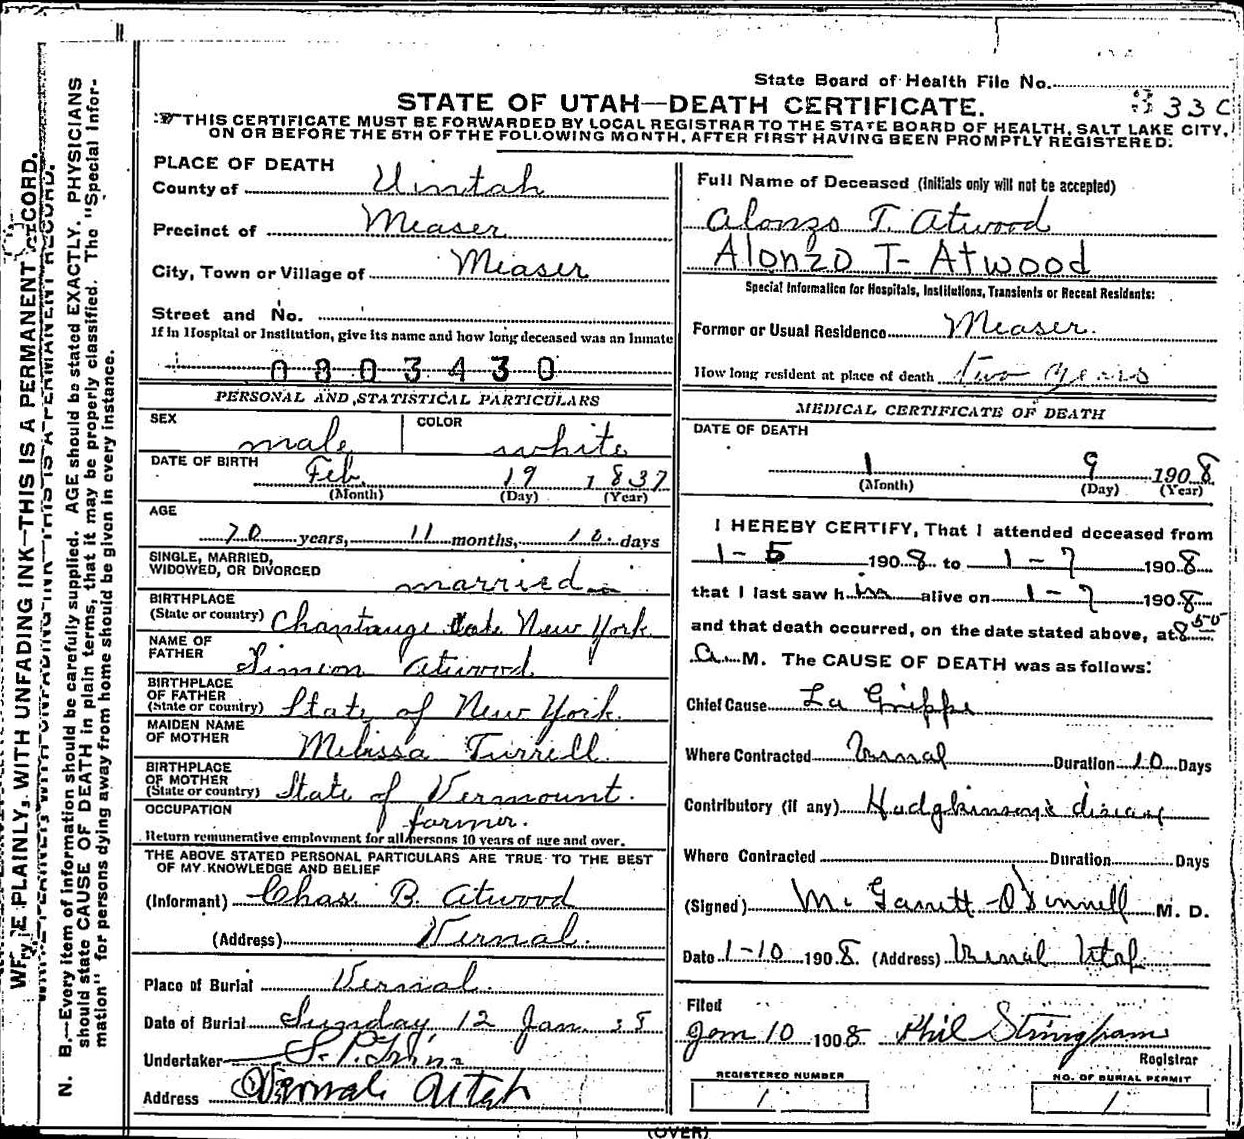 State Board of Health File No.
33
STATE OF UTAH—DEATH CERTIFICATE.
THIS CERTIFICATE MUST BE FORWARDED BY LOCAL REGISTRAR TO THE STATE BOARD OF HEALTH, SALT LAKE CITY,
ON OR BEFORE THE 5TH OF THE FOLLOWING MONTH, AFTER FIRST HAVING BEEN PROMPTLY REGISTERED.
PLACE OF DEATH
County of Uintah
Precinct of Measer
City, Town or Village of Measer
Street and No.
If in Hospital or Institution, give its name and how long deceased was an Inmate
0803430
PERSONAL AND STATISTICAL PARTICULARS
SEX male COLOR white
DATE OF BIRTH Feb. 19 1837
(Month) (Day) (Year)
AGE
70 years, 11 months, days
SINGLE, MARRIED,
WIDOWED, OR DIVORCED married
BIRTHPLACE
(State or country) New York
NAME OF
FATHER Simeon Atwood
BIRTHPLACE
OF FATHER
(State or country) State of New York.
MAIDEN NAME
OF MOTHER Melissa Turrell
BIRTHPLACE
OF MOTHER
(State or country) State of Vermount.
OCCUPATION farmer.
Return remunerative employment for all persons 10 years of age and over.
THE ABOVE STATED PERSONAL PARTICULARS ARE TRUE TO THE BEST
OF MY KNOWLEDGE AND BELIEF
(Informant) Chas. B. Atwood
(Address) Vernal.
Place of Burial Vernal.
Date of Burial Sunday 12 Jan.
Undertaker
Address Vernal Utah
Full Name of Deceased (Initials only will not be accepted)
Alonzo T. Atwood
Alonzo T- Atwood
Special Information for Hospitals, Institutions, Transients or Recent Residents:
Former or Usual Residence Measer.
How long resident at place of death two years
MEDICAL CERTIFICATE OF DEATH
DATE OF DEATH
1 9 1908
(Month) (Day) (Year)
I HEREBY CERTIFY, That I attended deceased from
1-5 1908 to 1-7 1908
that I last saw him alive on 1-7 1908
and that death occurred, on the date stated above, at 8 50
A M. The CAUSE OF DEATH was as follows:
Chief Cause La Grippe
Where Contracted Vernal Duration 10 Days
Contributory (if any) Hodgkinson's disease
Where Contracted Duration Days
(Signed) O'Donnell M. D.
Date 1-10 1908. (Address) Vernal Utah
Filed
Jan 10 1908 Phil Stringham
Registrar
REGISTERED NUMBER
1
NO. OF BURIAL PERMIT
1
(OVER)
WRITE PLAINLY, WITH UNFADING INK—THIS IS A PERMANENT RECORD.
N. B.—Every item of information should be carefully supplied. AGE should be stated EXACTLY. PHYSICIANS
should state CAUSE OF DEATH in plain terms, that it may be properly classified. The "Special Infor-
mation" for persons dying away from home should be given in every instance.